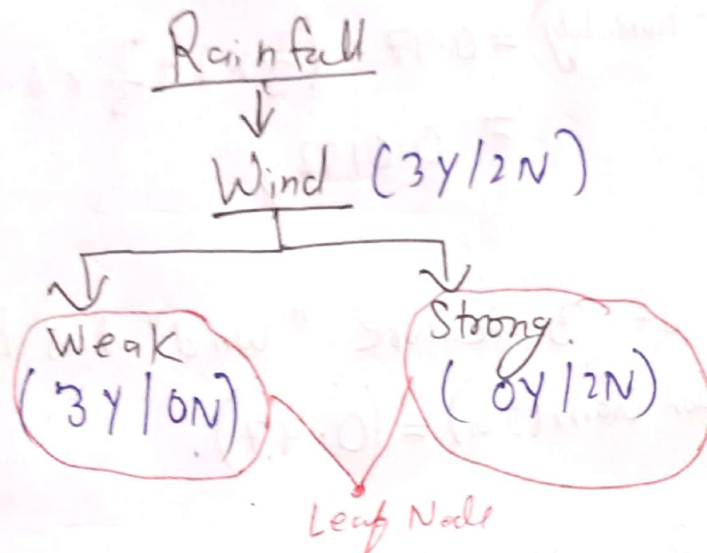 Rainfall
Wind (3Y/2N)
Weak
(3Y/0N)
Strong.
(0Y/2N)
Leaf Node